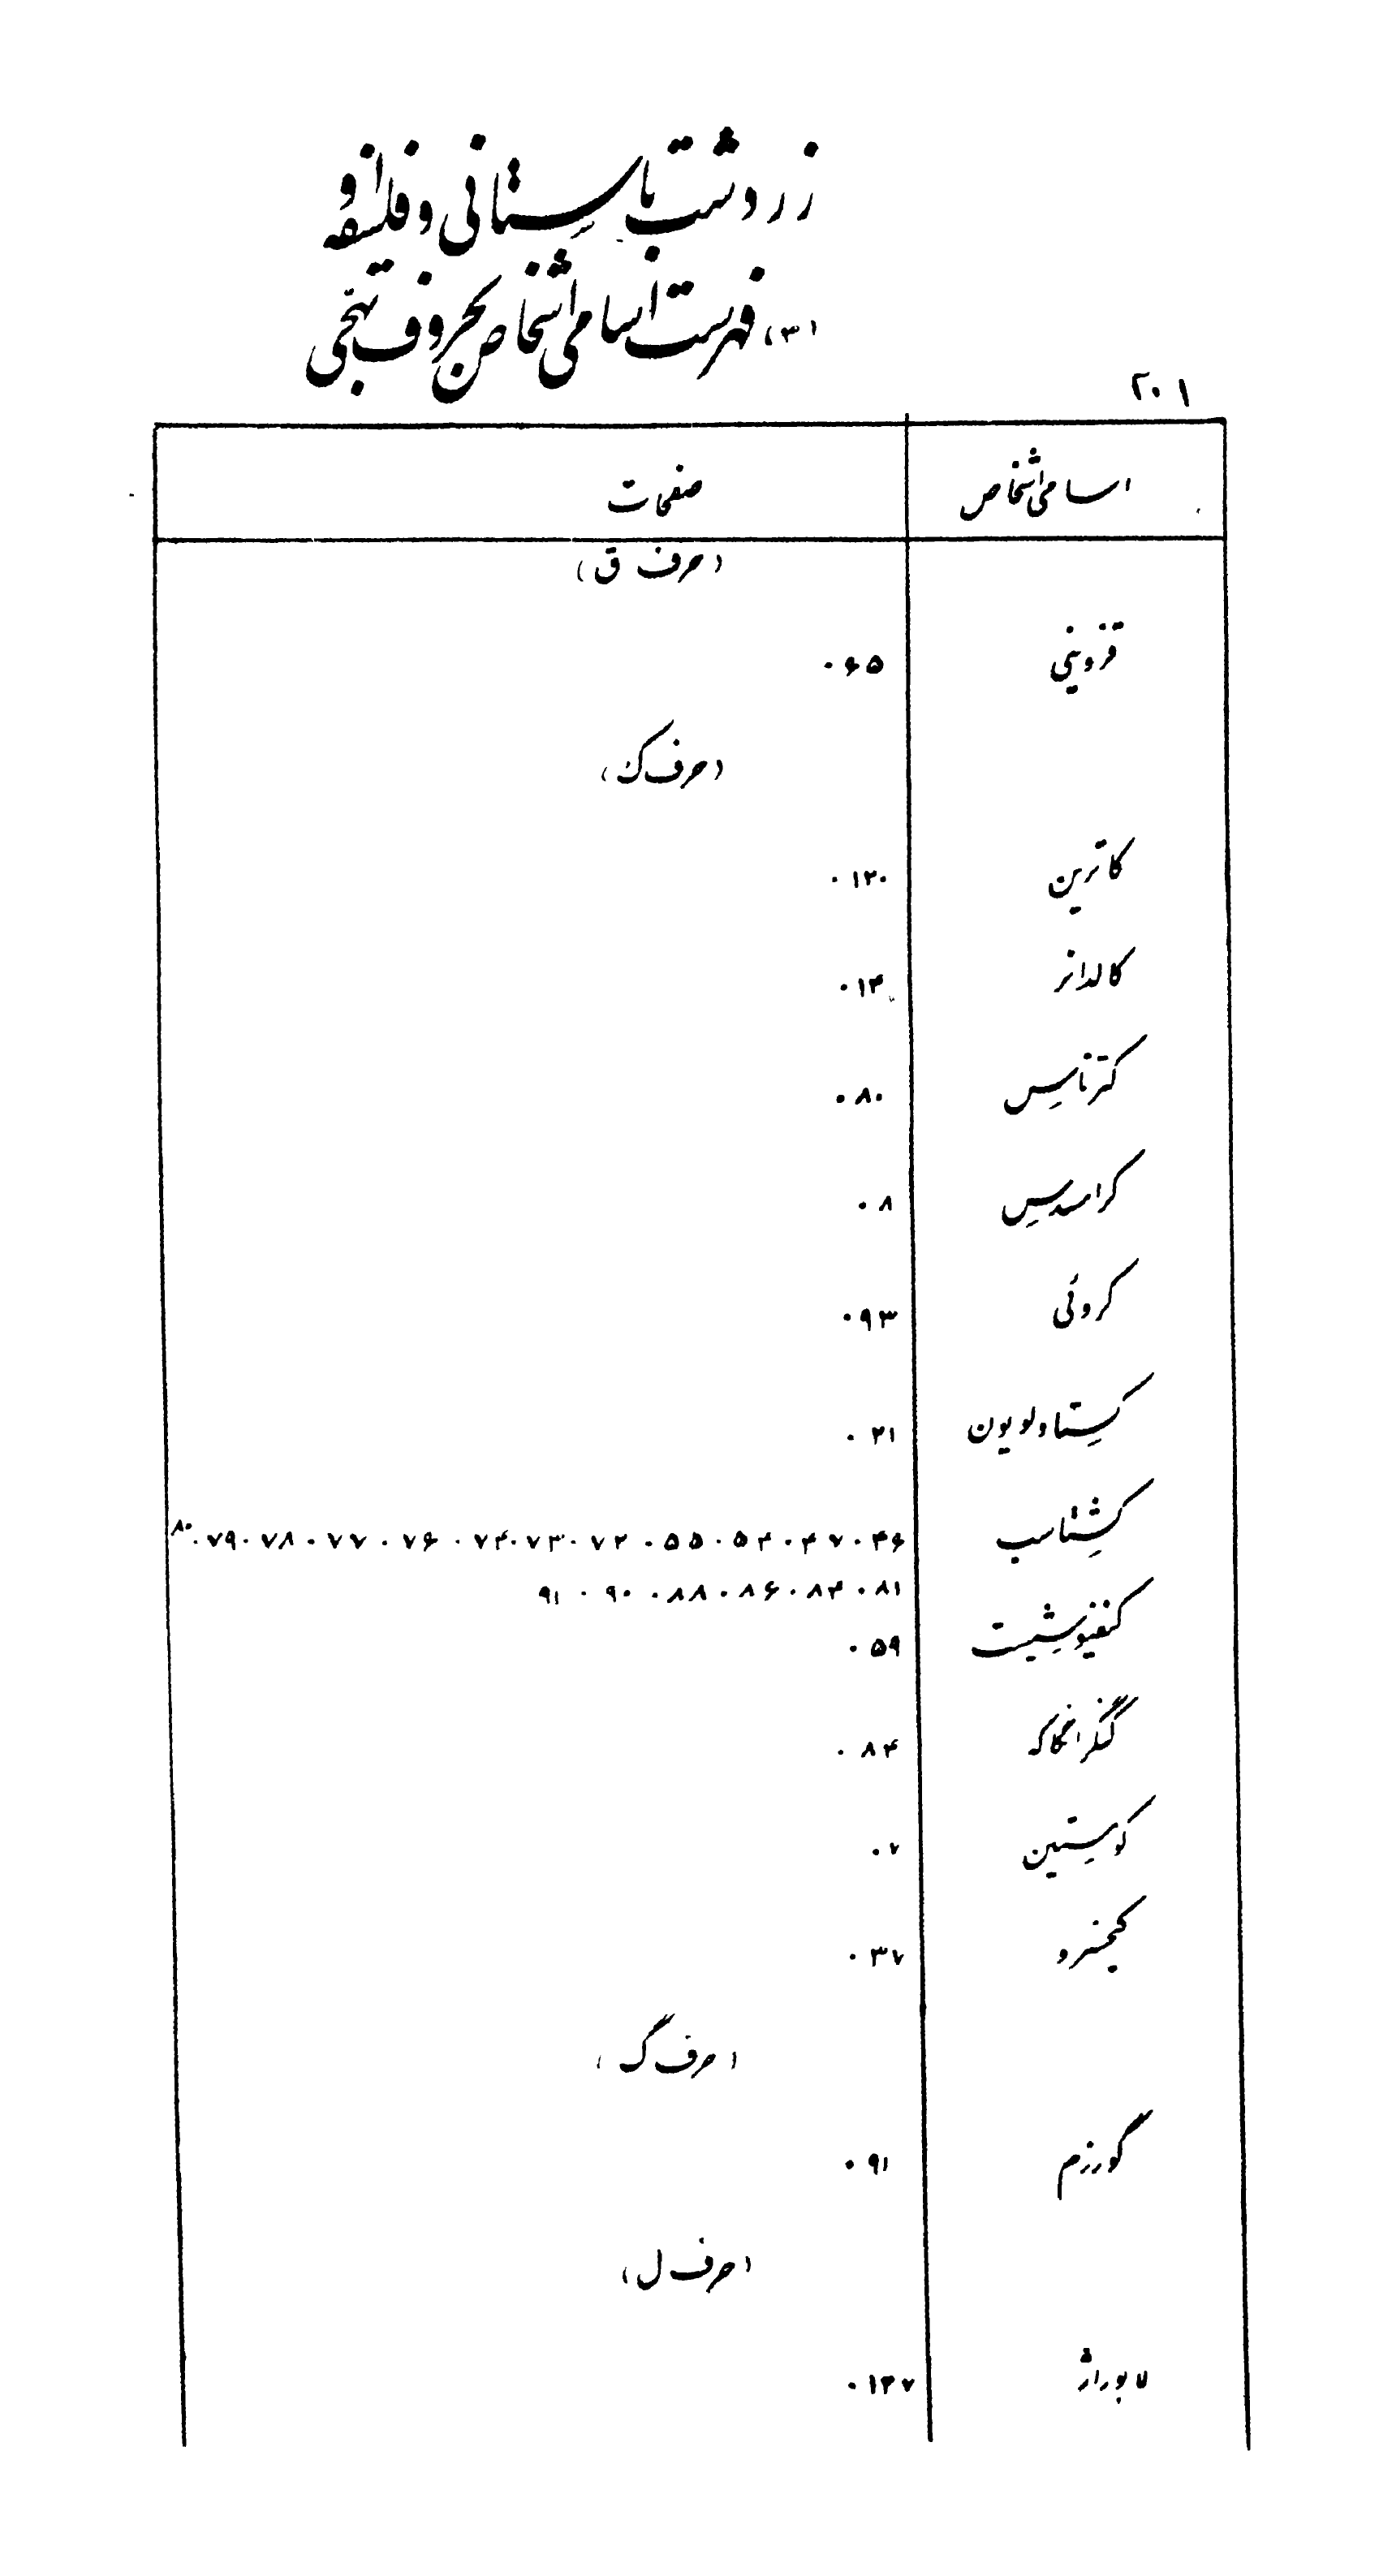 زردشت باستانی و فلسفه او
(۳) فهرست اسامی اشخاص بحروف تهجی
۲۰۱
اسامی اشخاص صفحات
(حرف ق)
قزوینی ۶۵.
(حرف ک)
کاترین ۱۲۰.
کالدانر ۱۴.
کترناسس ۸۰.
کرامدس ۸.
کروئی ۹۳.
کستاولوبون ۲۱.
کشتاسب ۴۶.۴۷.۵۴.۵۵.۷۲.۷۳.۷۴.۷۶.۷۷.۷۸.۷۹.۸۰
۸۱.۸۴.۸۶.۸۸.۹۰.۹۱
کنفیوشیست ۵۹.
کنگرانکاکه ۸۴.
کوستین ۷.
کیخسرو ۳۷.
(حرف گ)
گورزم ۹۱.
(حرف ل)
لابوراژ ۱۲۷.